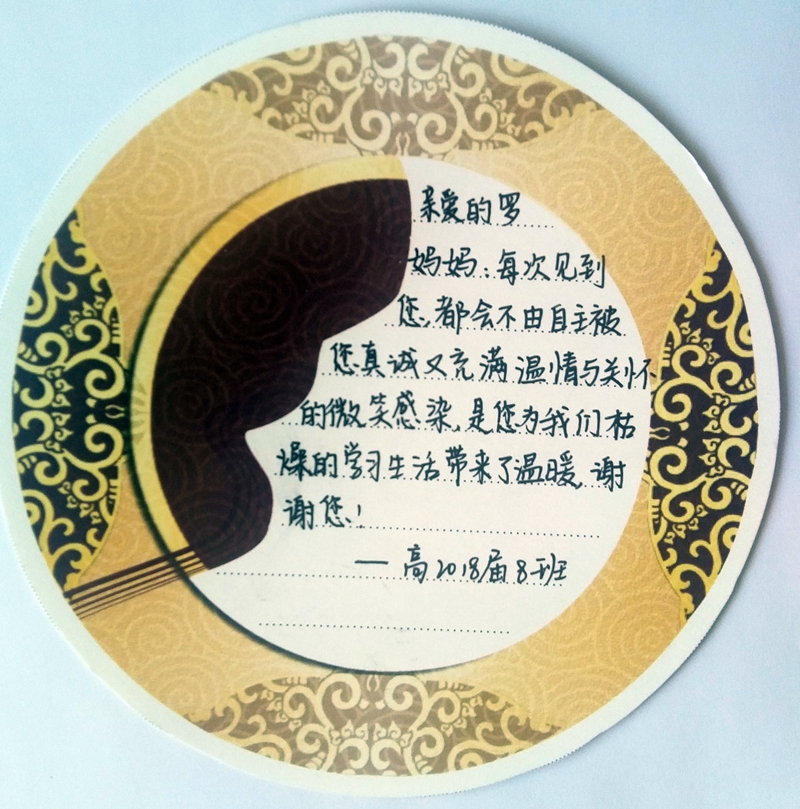 亲爱的罗
妈妈：每次见到
您，都会不由自主被
您真诚又充满温情与关怀
的微笑感染，是您为我们枯
燥的学习生活带来了温暖，谢
谢您！
— 高2018届8班